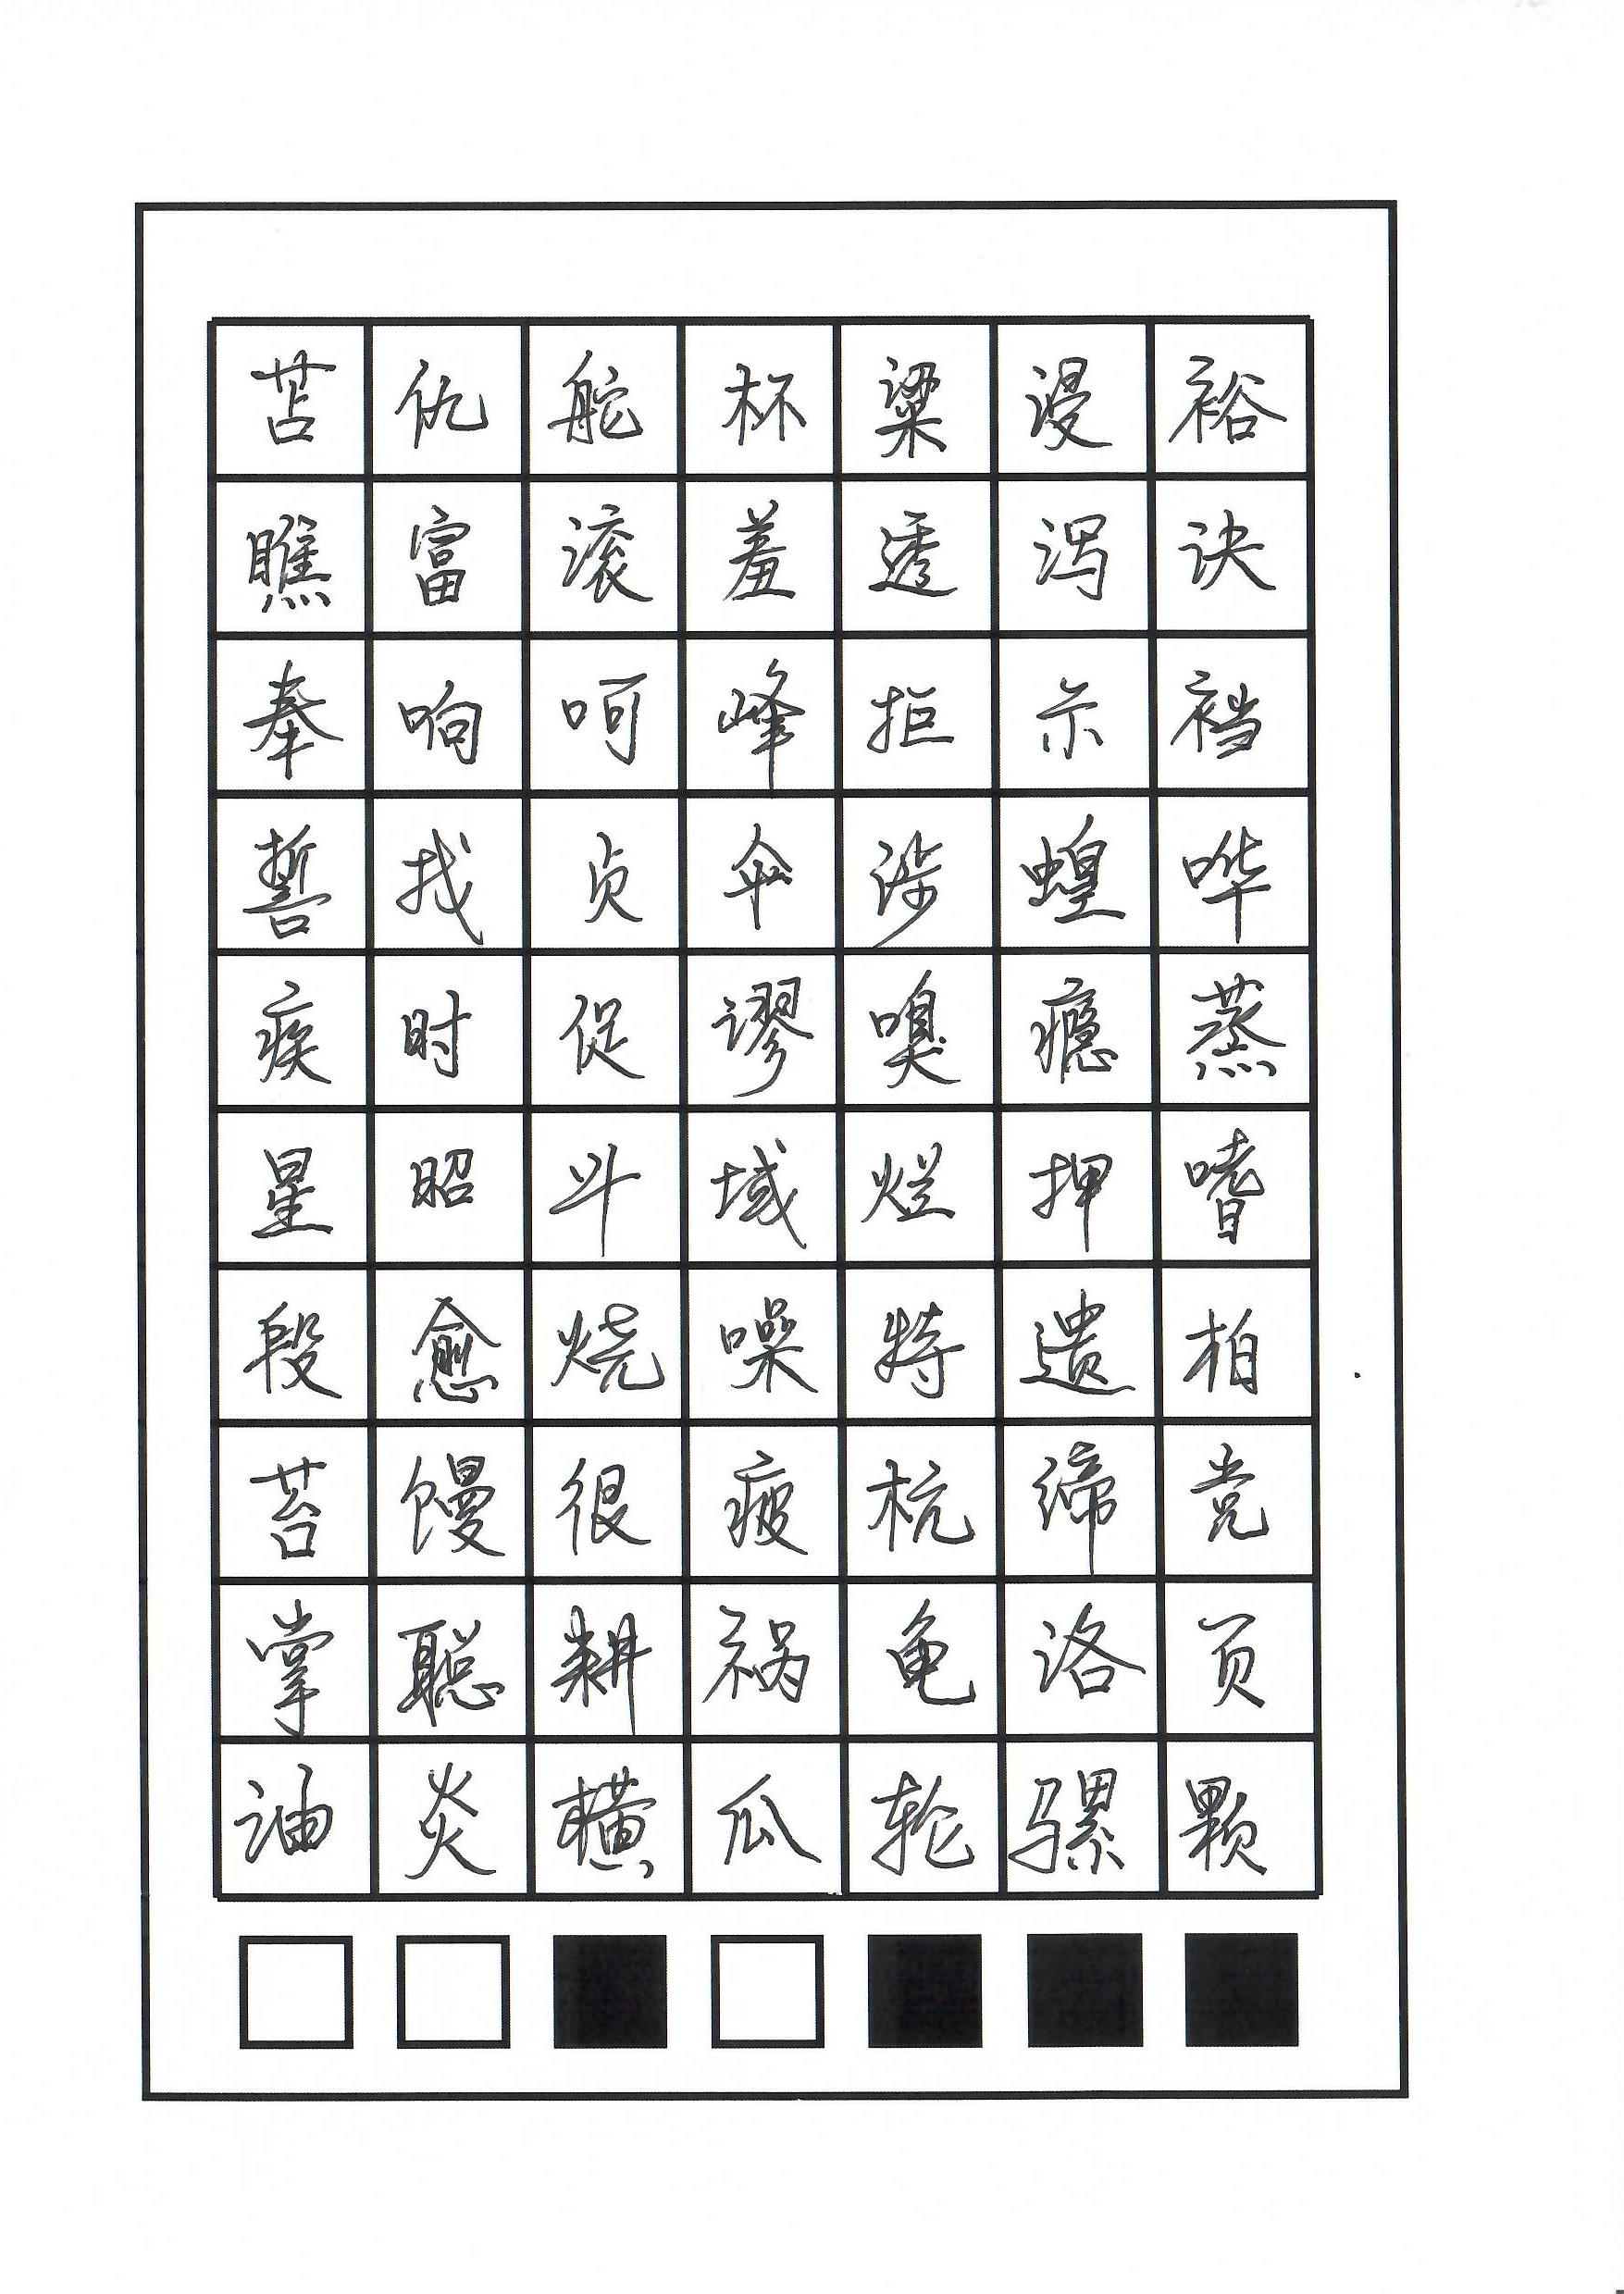 苫仇舵杯粱谩裕
瞧富滚羞透泻诀
奉响呵峰拒示裆
誓找贞伞涉蝗哗
疾时促谬嗅瘾蒸
星昭斗域烂押嗜
段愈烧噪特遗柏
苔馒很疲杭缔党
掌聪耕祸龟洛页
油炎横瓜轮骡颗